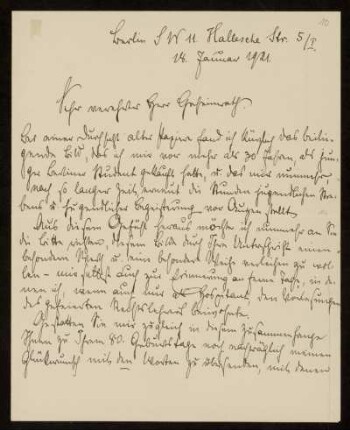 Berlin SW 11 Hallesche Str. 5/I
14. Januar 1921
Sehr verehrter Herr Geheimrath.
Bei einer Durchsicht alter Papiere fand ich kürzlich das beilie-
gende Bild, das ich mir vor mehr als 30 Jahren, als jun-
ger Berliner Student gekauft hatte, u. das mir nunmehr,
nach so langer Zeit, erneut die Stunden jugendlichen Stre-
bens u. jugendlicher Begeisterung vor Augen stellt.
Aus diesem Gefühl heraus möchte ich nunmehr an Sie
die Bitte richten, diesem Bilde durch Ihre Unterschrift einen
besonderen und eine besondere Weihe verleihen zu wol-
len – mir selbst auch zur Erinnerung an jene Tage, in de-
nen ich, wenn auch nur als Hospitant, den Vorlesungen
des gefeierten Rechtslehrers beiwohnte.
Gestatten Sie mir zugleich in diesem Zusammenhange
Ihnen zu Ihrem 80. Geburtstage noch nachträglich meinen
Glückwunsch mit den Worten zu übersenden, mit denen